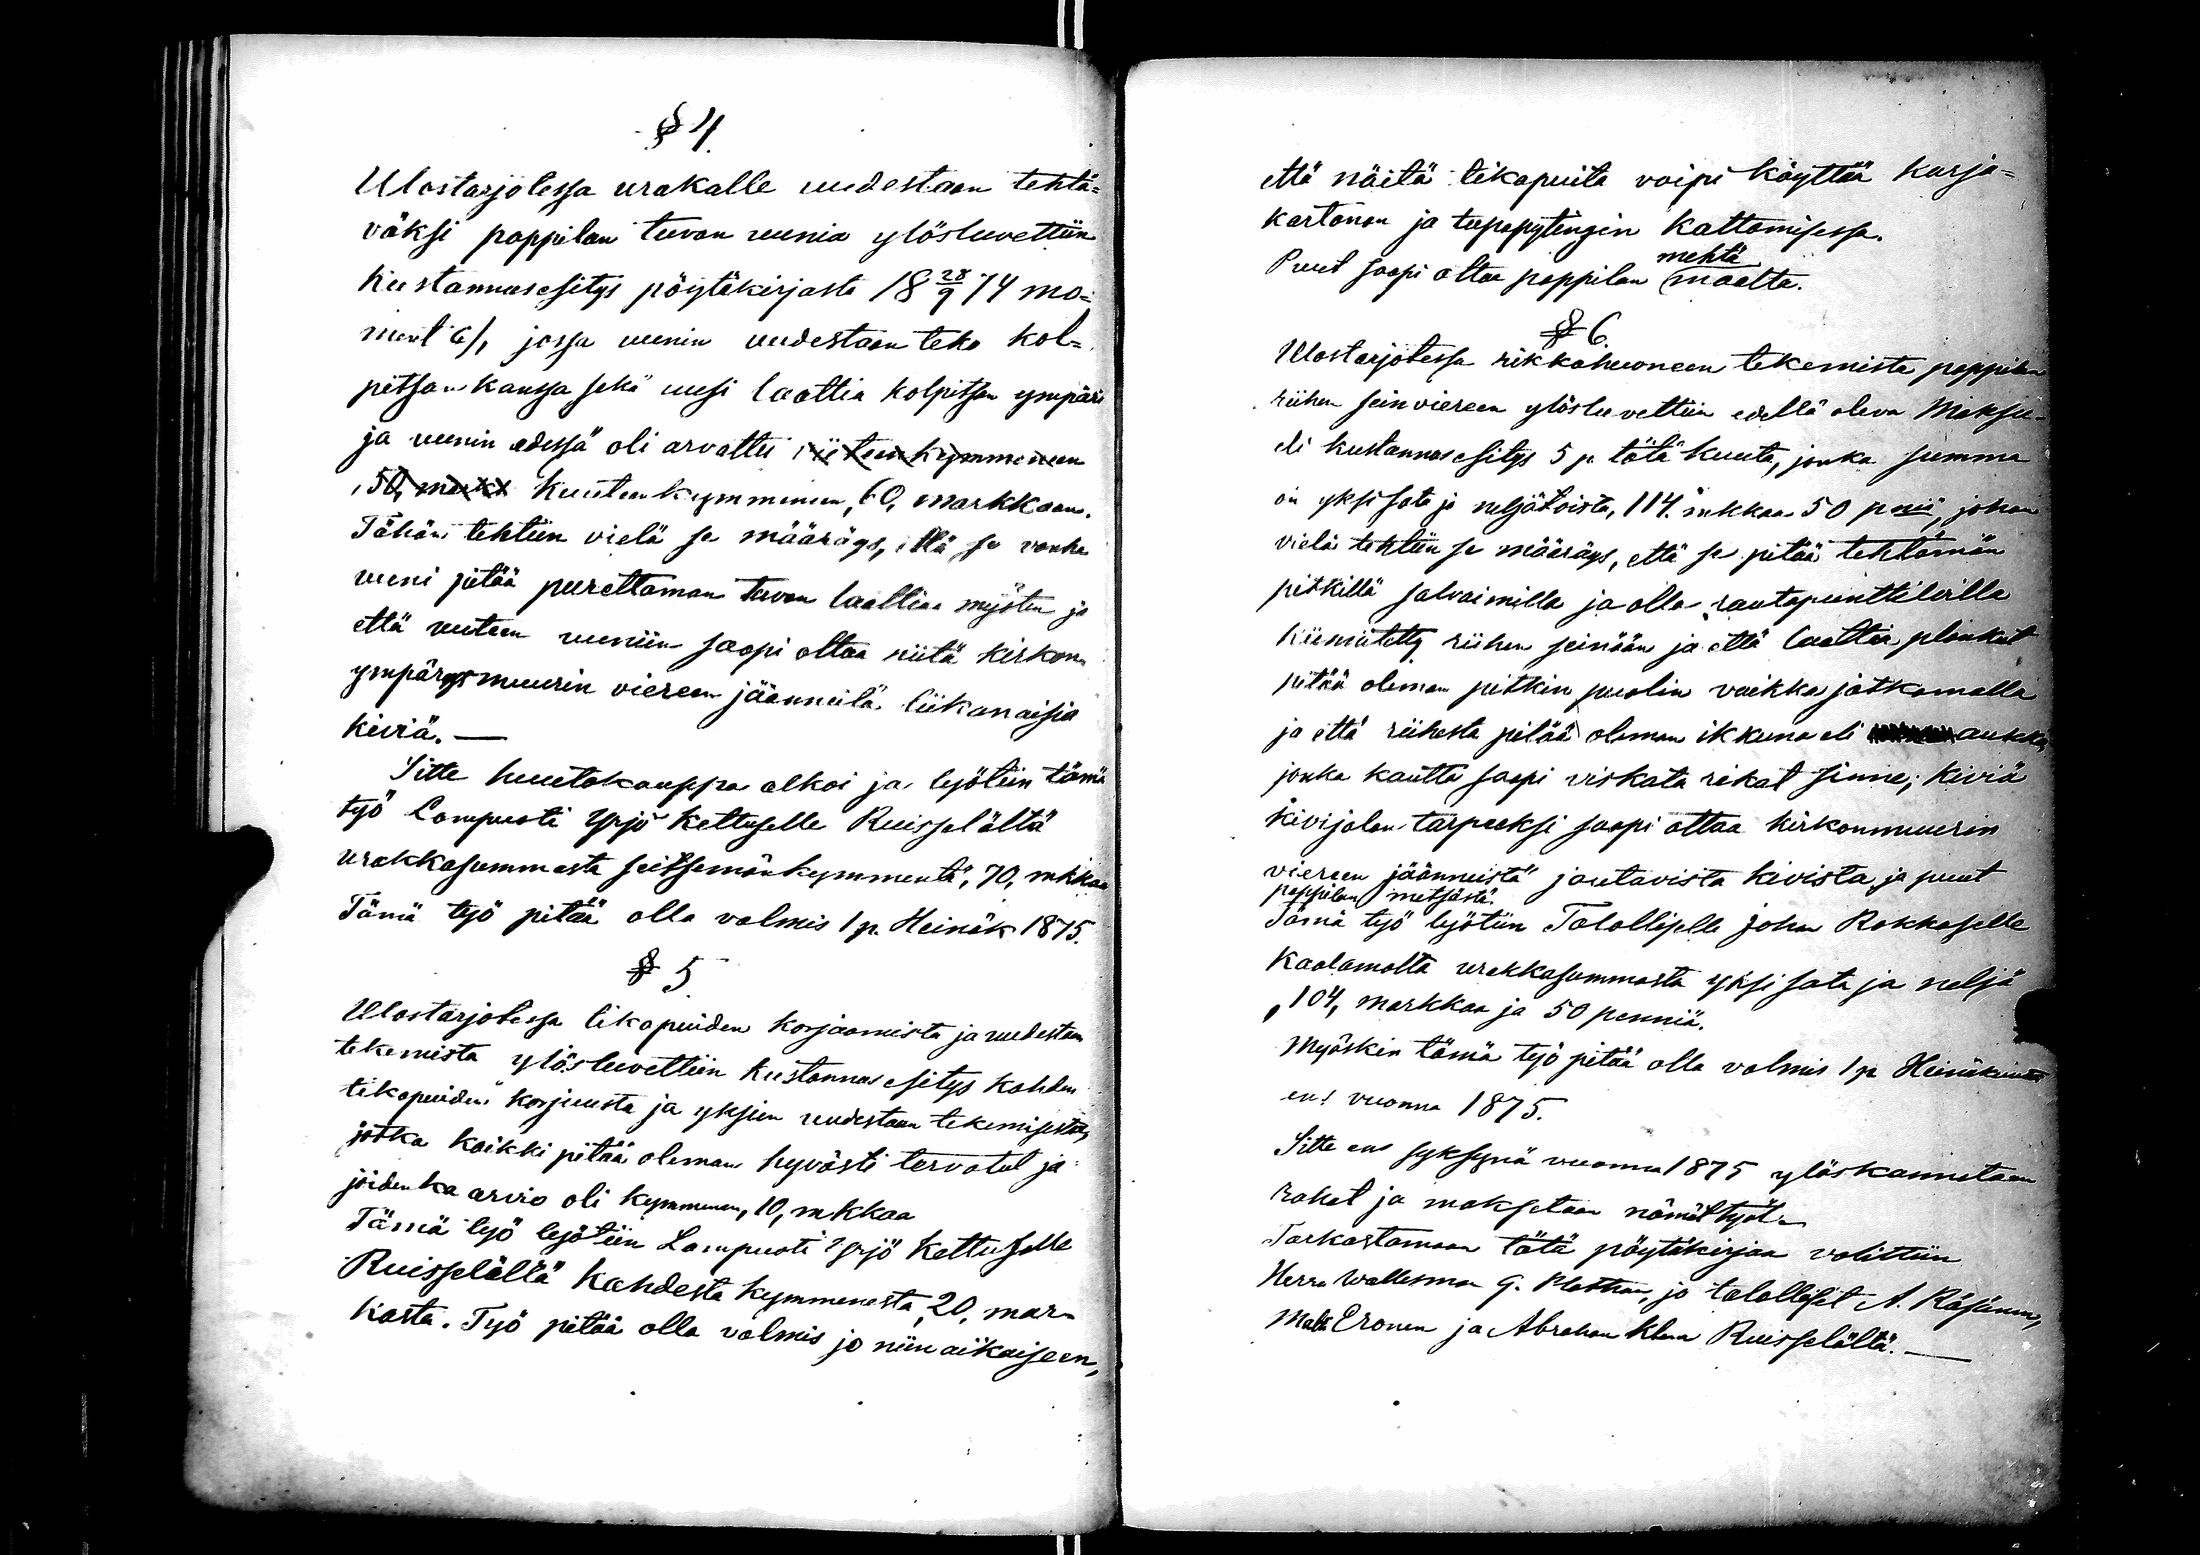 § 4.
Ulostarjotessa urakalle uudestaan tehtä=
väksi pappilan tuvan uunia ylösluvettiin
kustannusesitys pöytäkirjasta 18 28/9 74 mo=
ment c/, jossa uunin uudestaan teko kol=
pitsan kanssa sekä uusi laattia kolpitsan ympäri
ja uunin edessä oli arvattu viiteenkymmeneen
,50, markk kuuteenkymmeneen, 60, markkaan.
Tähän tehtiin vielä se määräys, että se vanha
uuni pitää purettaman tuvan laattiaa myöten ja
että uuteen uuniin saapi ottaa niitä kirkon
ympärysmuurin viereen jäänneitä liikanaisia
kiviä. —
Sitte huutokauppa alkoi ja lyötiin tämä
työ Lampuoti Yrjö Kettuselle Ruisselältä
urakkasummasta seitsemänkymmentä, 70, mkkaa
Tämä työ pitää olla valmis 1 p. Heinäk 1875.
§ 5
Ulostarjotessa tikapuiden korjaamista ja uudestaan
tekemista ylösluvettiin kustannus esitys kahden
tikapuiden korjuusta ja yksien uudestaan tekemisestä,
jotka kaikki pitää oleman hyvästi tervatut ja
joidenka arvio oli kymmenen, 10, mkkaa
Tämä työ lyötiin Lampuoti Yrjö Kettuselle
Ruisselältä kahdesta kymmenestä, 20, mar=
kasta. Työ pitää olla valmis jo niin aikaiseen,
että näitä tikapuita voipi käyttää karja=
kartanon ja kattamisessa.
mehtä
Puut saapi ottaa pappilan maalta.
§ 6.
Ulostarjotessa rikkahuoneen tekemista pappilan
riihen seinviereen ylösluvettiin edellä oleva Maksu=
eli kustannusesitys 5 p tätä kuuta, jonka summa
on yksi sata ja neljätoista, 114. mkkaa 50 pniä, johon
vielä tehtiin se määräys, että se pitää tehtämän
pitkillä salvaimilla ja olla rautapunttiloilla
kiinnitetty riihen seinään ja että laattia plankut
pitää oleman pitkin puolin vaikka jatkamalla
ja että riihestä pitää oleman ikkuna eli aukko
jonka kautta saapi viskata rikat sinne; kiviä
kivijalan tarpeeksi saapi ottaa kirkonmuurin
viereen jäänneistä joutavista kivista ja puut
pappilan metsästä.
Tämä työ lyötiin Talolliselle Johan Rokkaselle
Kaalamolta urakkasummasta yksi sata ja neljä
, 104, markkaa ja 50 penniä.
Myöskin tämä työ pitää olla valmis 1 p Heinäkuuta
ens vuonna 1875.
Sitte ens syksynä vuonna 1875 ylöskannetaan
rahat ja maksetaan nämät työt.
Tarkastamaan tätä pöytäkirjaa valittiin
Herra Wallesman G. ja talolliset A. Räsänen,
Matti Eronen ja Abraham Ruisselältä. —